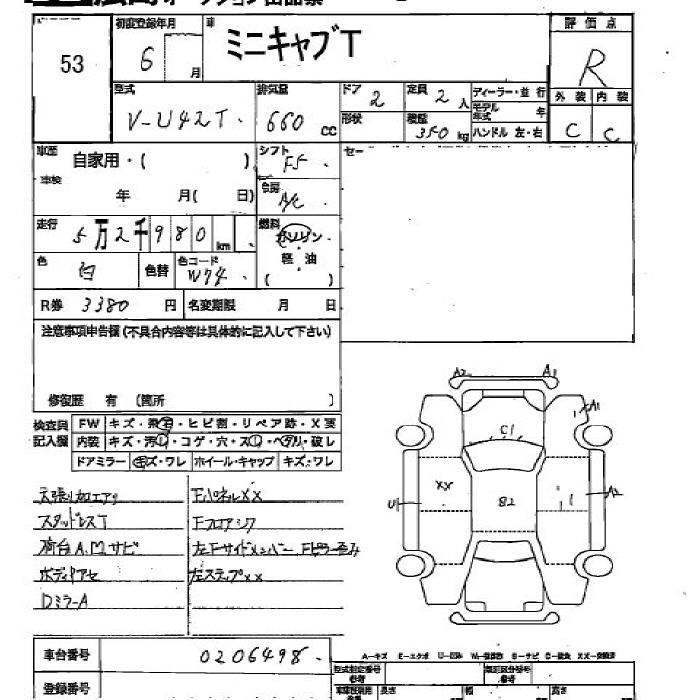 53
初度登録年月 車
6 月 ミニキャブT
評価点
R
型式 排気量 ドア 定員 ディーラー・並行
V-U42T. 660 CC 2 2人 モデル年式 年
形状 積量 350kg ハンドル 左・右
外装 内装
C C
車歴 自家用・( ) シフト F5. セー
車検 年 月( 日) 冷房 A/C
走行 5万2千980 km 燃料 ガソリン・軽油 ( )
色 白 色替 色コード W74.
R券 3380 円 名変期限 月 日
注意事項申告欄 (不具合内容等は具体的に記入して下さい)
修復歴 有 (箇所 )
検査員記入欄 FW キズ・飛石・ヒビ割・リペア跡・X要
内装 キズ・汚レ・コゲ・穴・スレ・ヘタリ・破レ
ドアミラー キズ・ワレ ホイール・キャップ キズ・ワレ
天張リ加エアリ FパネルXX
スタッドレスT Fフロアシワ
荷台A.Mサビ 左Fサイドメンバー Fピラー歪み
ボディアセ 左ステップxx
DミラーA
A2 A1
A1
C1
XX 82
U1 A2
A-キズ E-エクボ
車台番号 0206498.
型式指定番号 類別区分番号
登録番号
長さ 幅 高さ